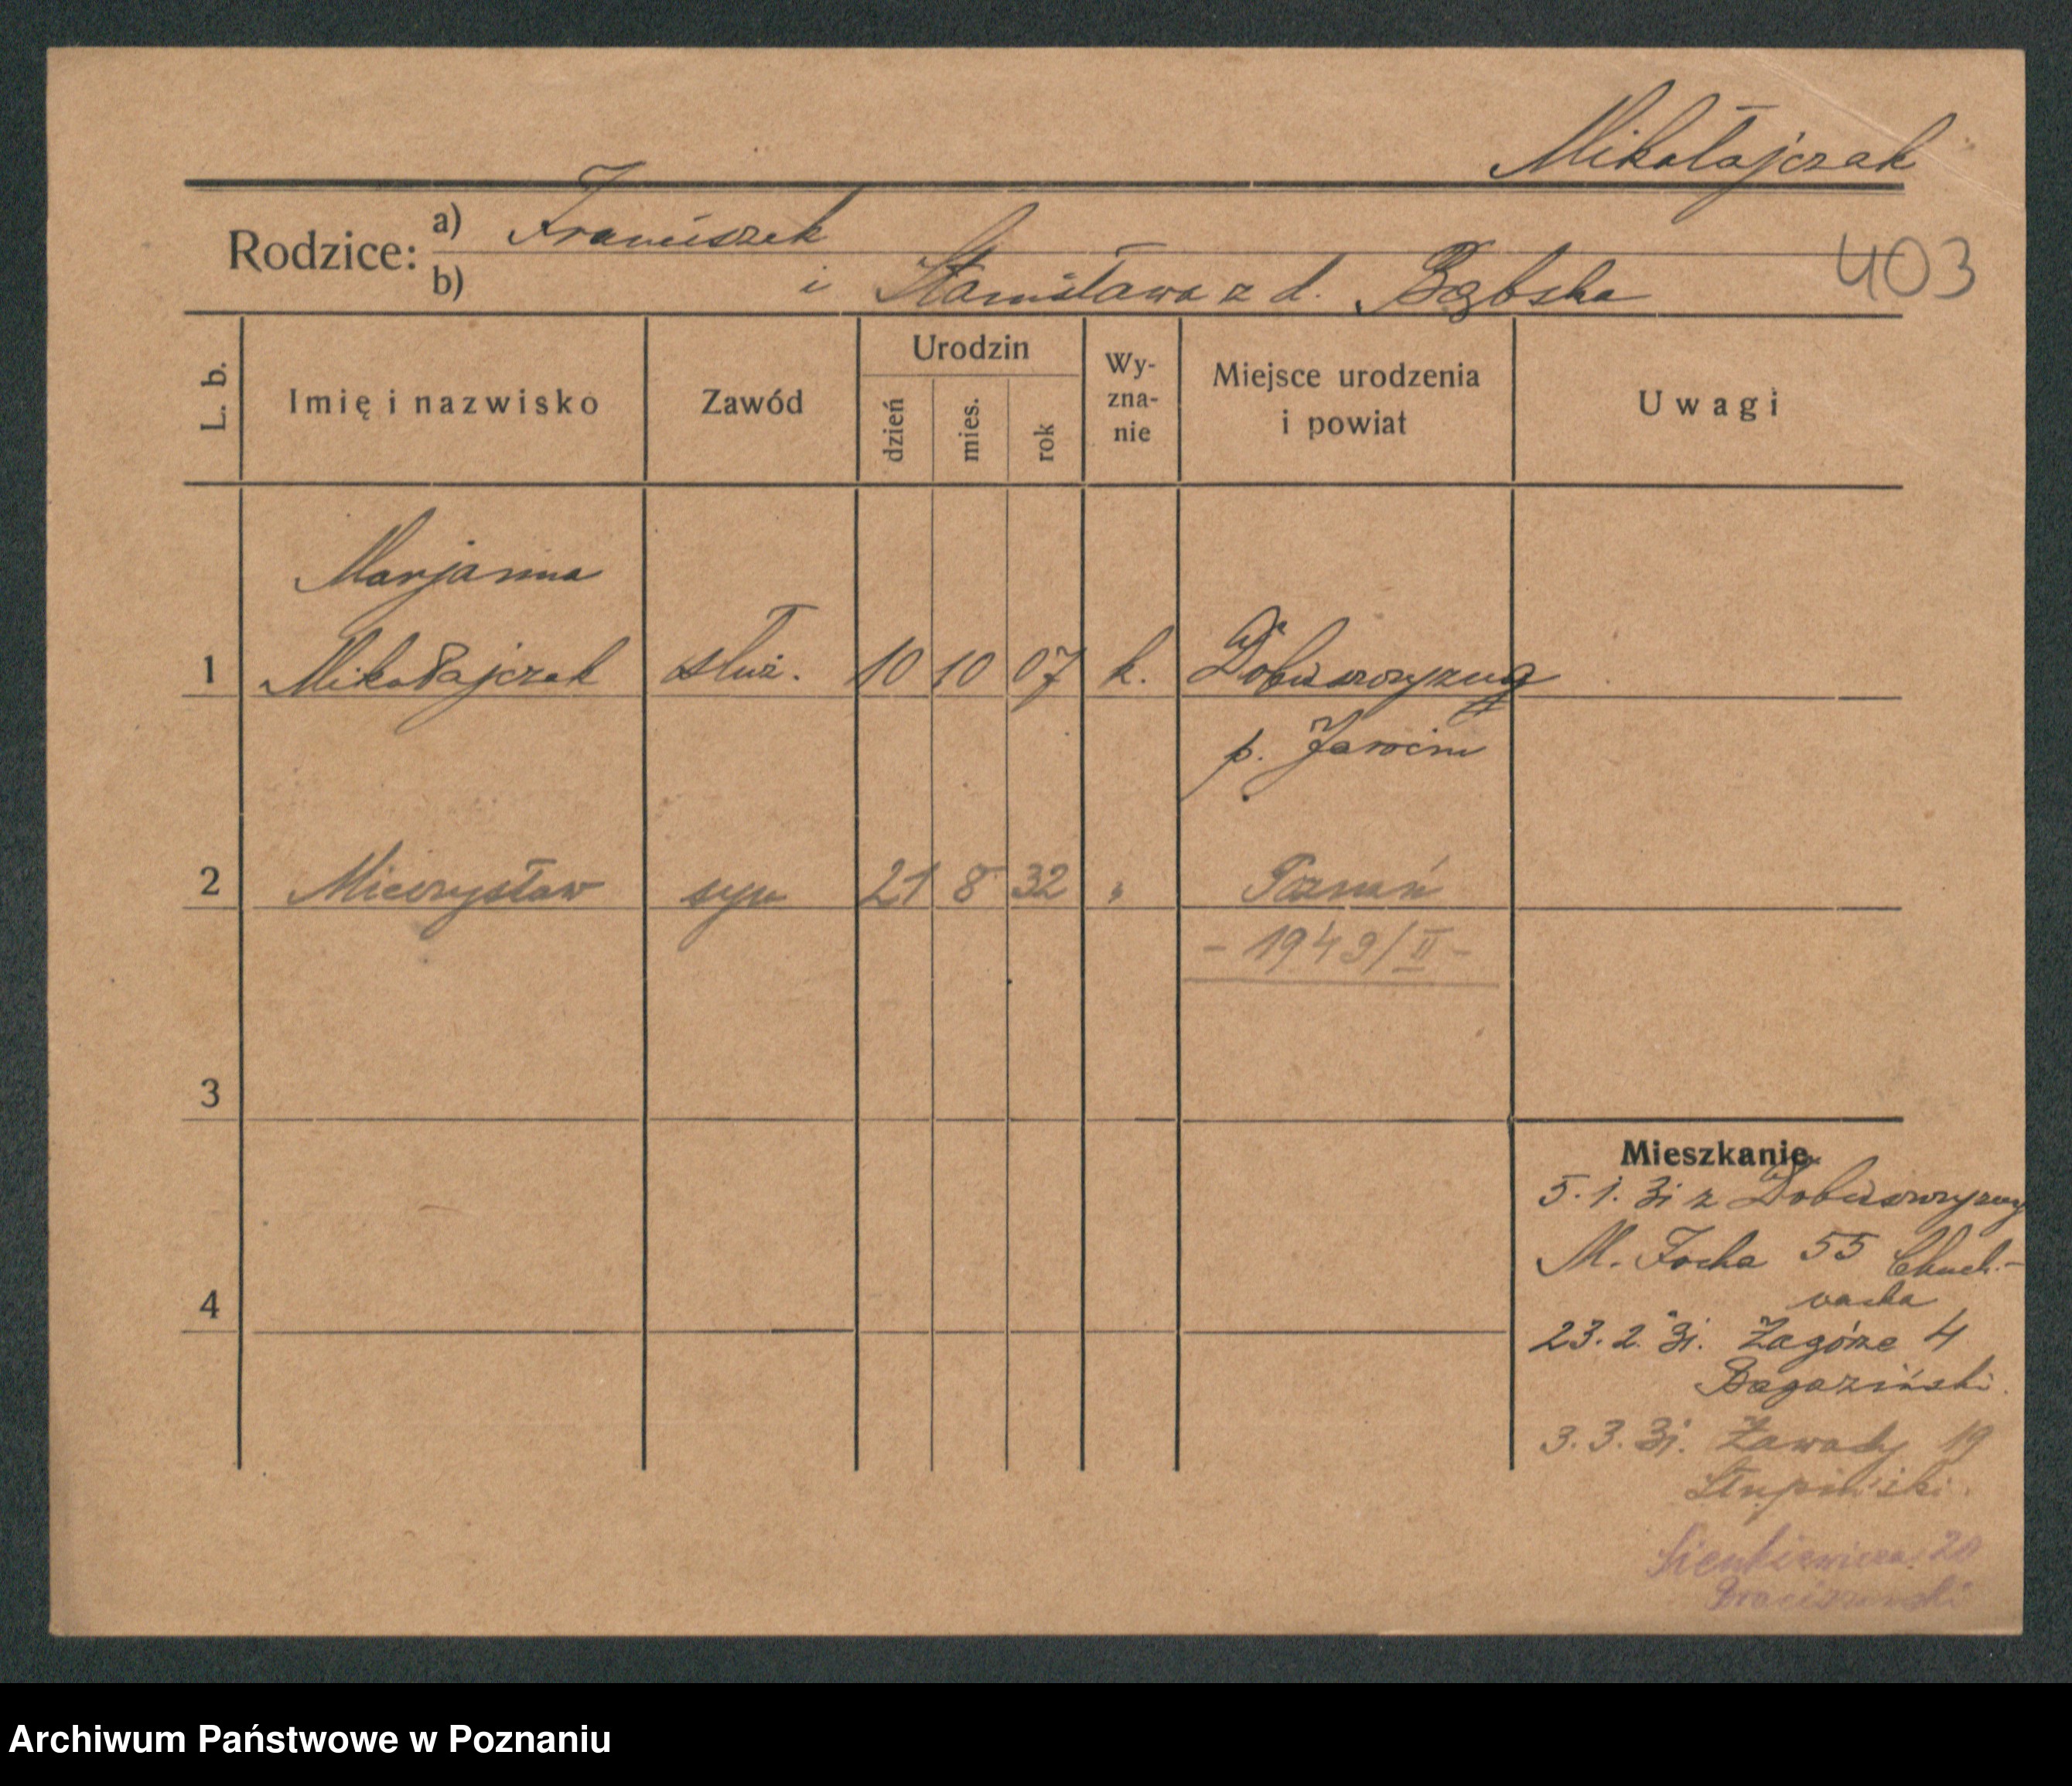 Mikołajczak
Rodzice: a) Franciszek
b) i Stanisława z d. Bąbska
403
L. b. Imię i nazwisko Zawód Urodzin dzień mies. rok Wy-zna-nie Miejsce urodzenia i powiat Uwagi
Marjanna
1 Mikołajczak służ. 10 10 07 k. Dobieszczyzna
p. Jarocin
2 Mieczysław syn 21 8 32 " Poznań
- 1949/II -
3
4
Mieszkanie
5.1.31 z Dobieszczyzny
M. Focha 55
23.2.31. Zagórze 4
3.3.31. Zawady 19
Stupiński
Sienkiewicza 20
Archiwum Państwowe w Poznaniu